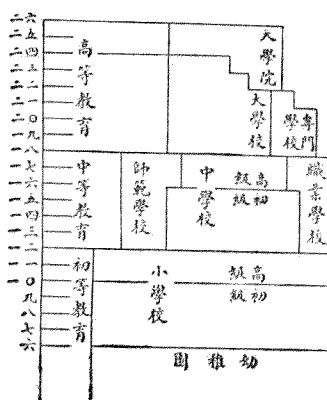 二六
二五
二四
二三
二二
二一
二〇
一九
一八
一七
一六
一五
一四
一三
一二
一一
一〇
九
八
七
六
高等教育
大學院
大學校
專門學校
中等教育
師範學校
中學校
高級
初級
職業學校
初等教育
小學校
高級
初級
幼稚園